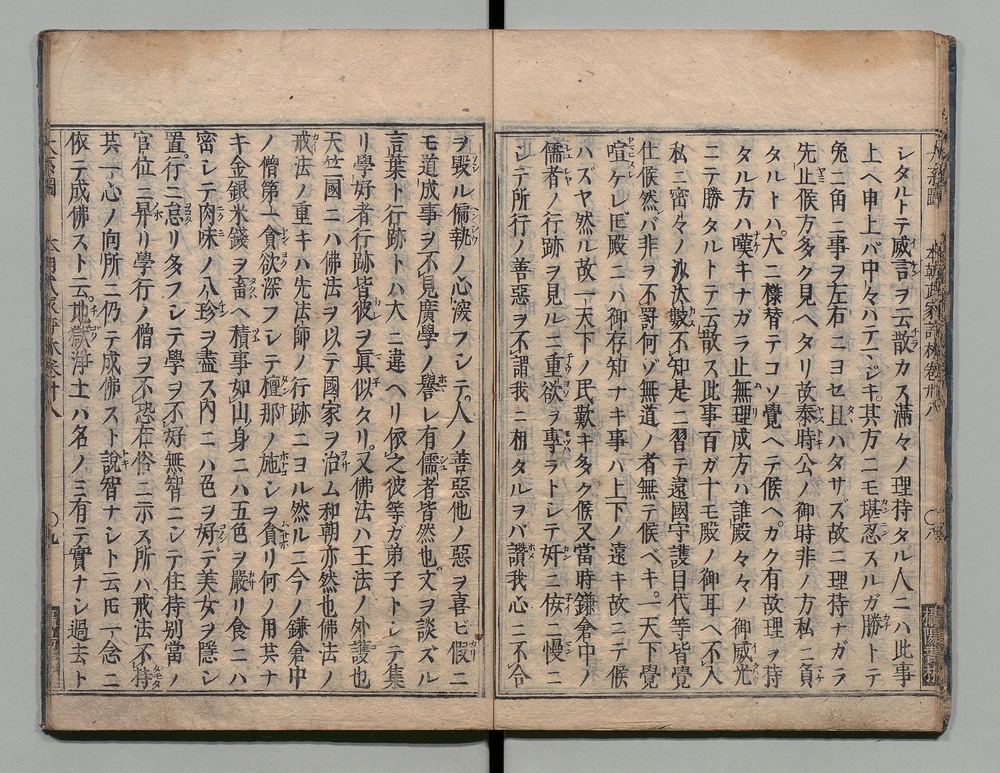 シタルトテ威言ヲ云散カス滿々ノ理持タル人ニハ此事
上ヘ申上バ中々ハテマジキ其方ニモ堪忍スルガ勝トテ
兔ニ角ニ事ヲ左右ニヨセ且ハタサズ故ニ理持ナガラ
先止候方多ク見ヘタリ故泰時公ノ御時非ノ方私ニ負
タルトハ大ニ様替テコソ覺ヘテ候ヘカク有故理ヲ持
タル方ハ嘆キナガラ止無理成方ハ誰殿々々ノ御威光
ニテ勝タルトテ云散ス此事百ガ十モ殿ノ御耳ヘ不入
私ニ密々ノ沙汰數不知是ニ習テ遠國守護目代等皆覺
仕候然バ非ヲ不罸何ゾ無道ノ者無テ候ベキ一天下覺
喧ケレ𪜈殿ニハ御存知ナキ事ハ上下ノ遠キ故ニテ候
ハズヤ然ル故一天下ノ民歎キ多ク候又當時鎌倉中ノ
儒者ノ行跡ヲ見ルニ重欲ヲ專ラトシテ奸ニ侫ニ慢ニ
シテ所行ノ善惡ヲ不謂我ニ相タルヲバ讚我心ニ不合
ヲ毀ル偏執ノ心深フシテ人ノ善惡他ノ惡ヲ喜ビ假ニ
モ道成事ヲ不見廣學ノ譽レ有儒者皆然也文ヲ談ズル
言葉ト行跡トハ大ニ違ヘリ依之彼等ガ弟子トシテ集
リ學好者行跡皆彼ヲ眞似タリ又佛法ハ王法ノ外護也
天竺國ニハ佛法ヲ以テ國家ヲ治ム和朝亦然也佛法ノ
戒法ノ重キハ先法師ノ行跡ニヨル然ルニ今ノ鎌倉中
ノ僧第一貪欲深フシテ檀那ノ施シヲ貪リ何ノ用共ナ
キ金銀米錢ヲ畜ヘ積事如山身ニハ五色ヲ嚴リ食ニハ
密シテ肉味ノ八珍ヲ盡ス内ニハ色ヲ好テ美女ヲ隱シ
置行ニ怠リタフシテ學ヲ不好無智ニシテ住持别當ノ
官位ニ昇リ學行ノ僧ヲ不恐在俗ニ示ス所ハ戒法不持
共一心ノ向所ニ仍テ成佛スト說智ナシト云𪜈一念ニ
依テ成佛スト云地獄淨土ハ名ノミ有テ實ナシ過去ト